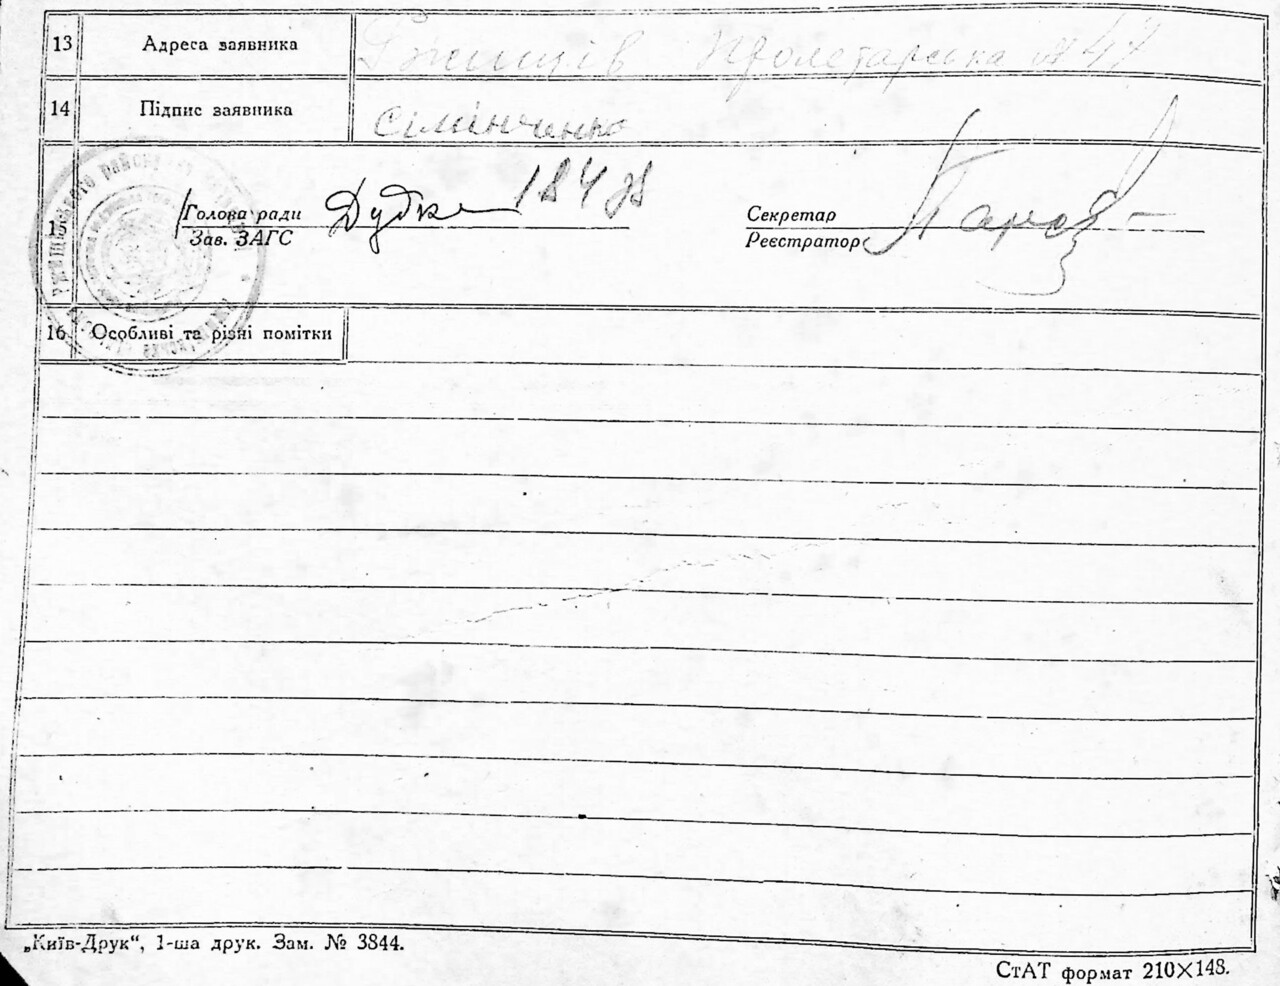 13 Адреса заявника Ржищів Пролетарська № 47
14 Підпис заявника Сімінченко
15 Голова ради Дудка
Зав. ЗАГС
Секретар
Реєстратор
16 Особливі та різні помітки
„Київ-Друк“, 1-ша друк. Зам. № 3844.
СтАТ формат 210×148.